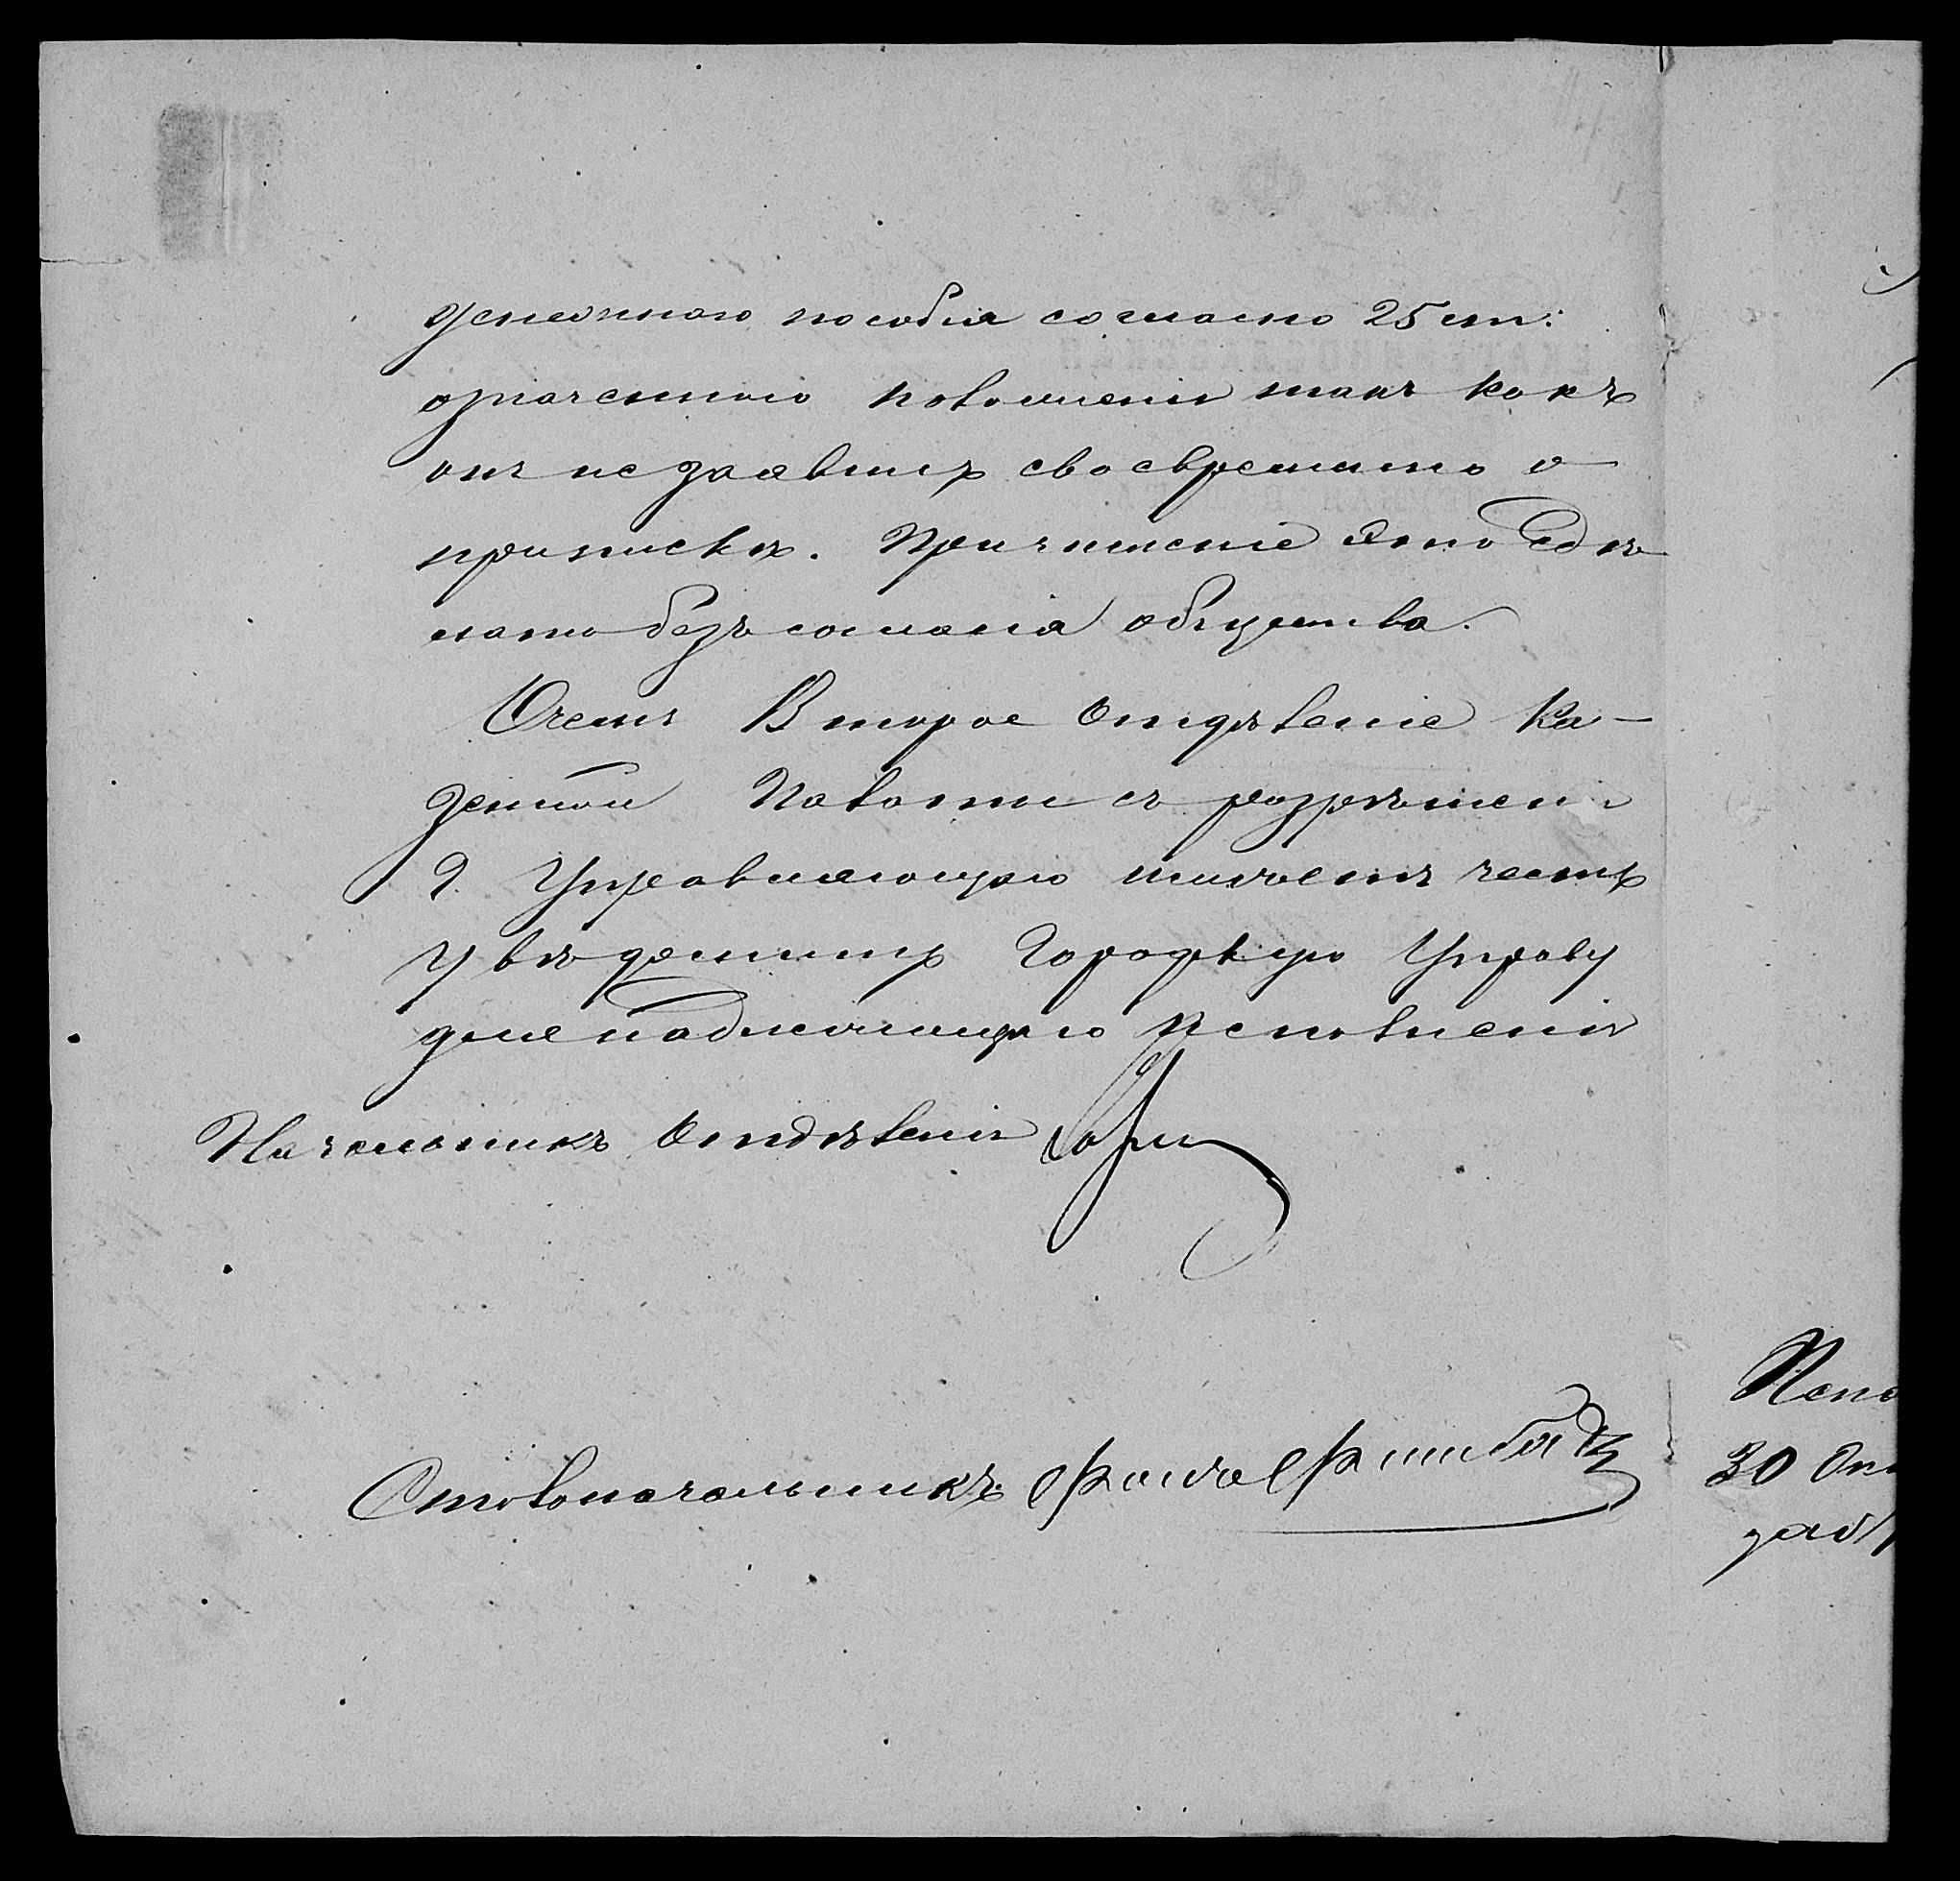 денежнаго пособія согласно 25 ст:
означеннаго положенія такъ какъ
онъ не заявилъ своевременно о
припискѣ. Причисленіе это сдѣ-
лано безъ согласія общества.
О чемъ Второе Отдѣленіе Ка-
зенной Палаты съ разрѣшенія
Г. Управляющаго имѣетъ честь
увѣдомить Городскую Управу
для надлежащаго исполненія
Начальникъ Отдѣленія
Столоначальникъ
Испо
30 Ок